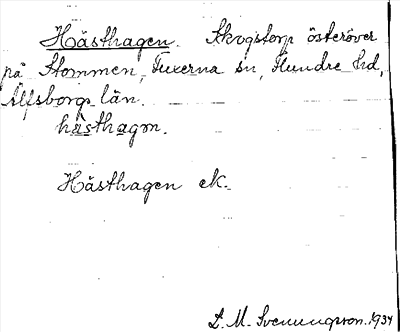 Hästhagen. Skogstorp österöver
på Stommen, Fuxerna sn, Flundre hd,
Älfsborgs län.
hästhagm.
Hästhagen ek.
L. M. Svenungsson. 1934